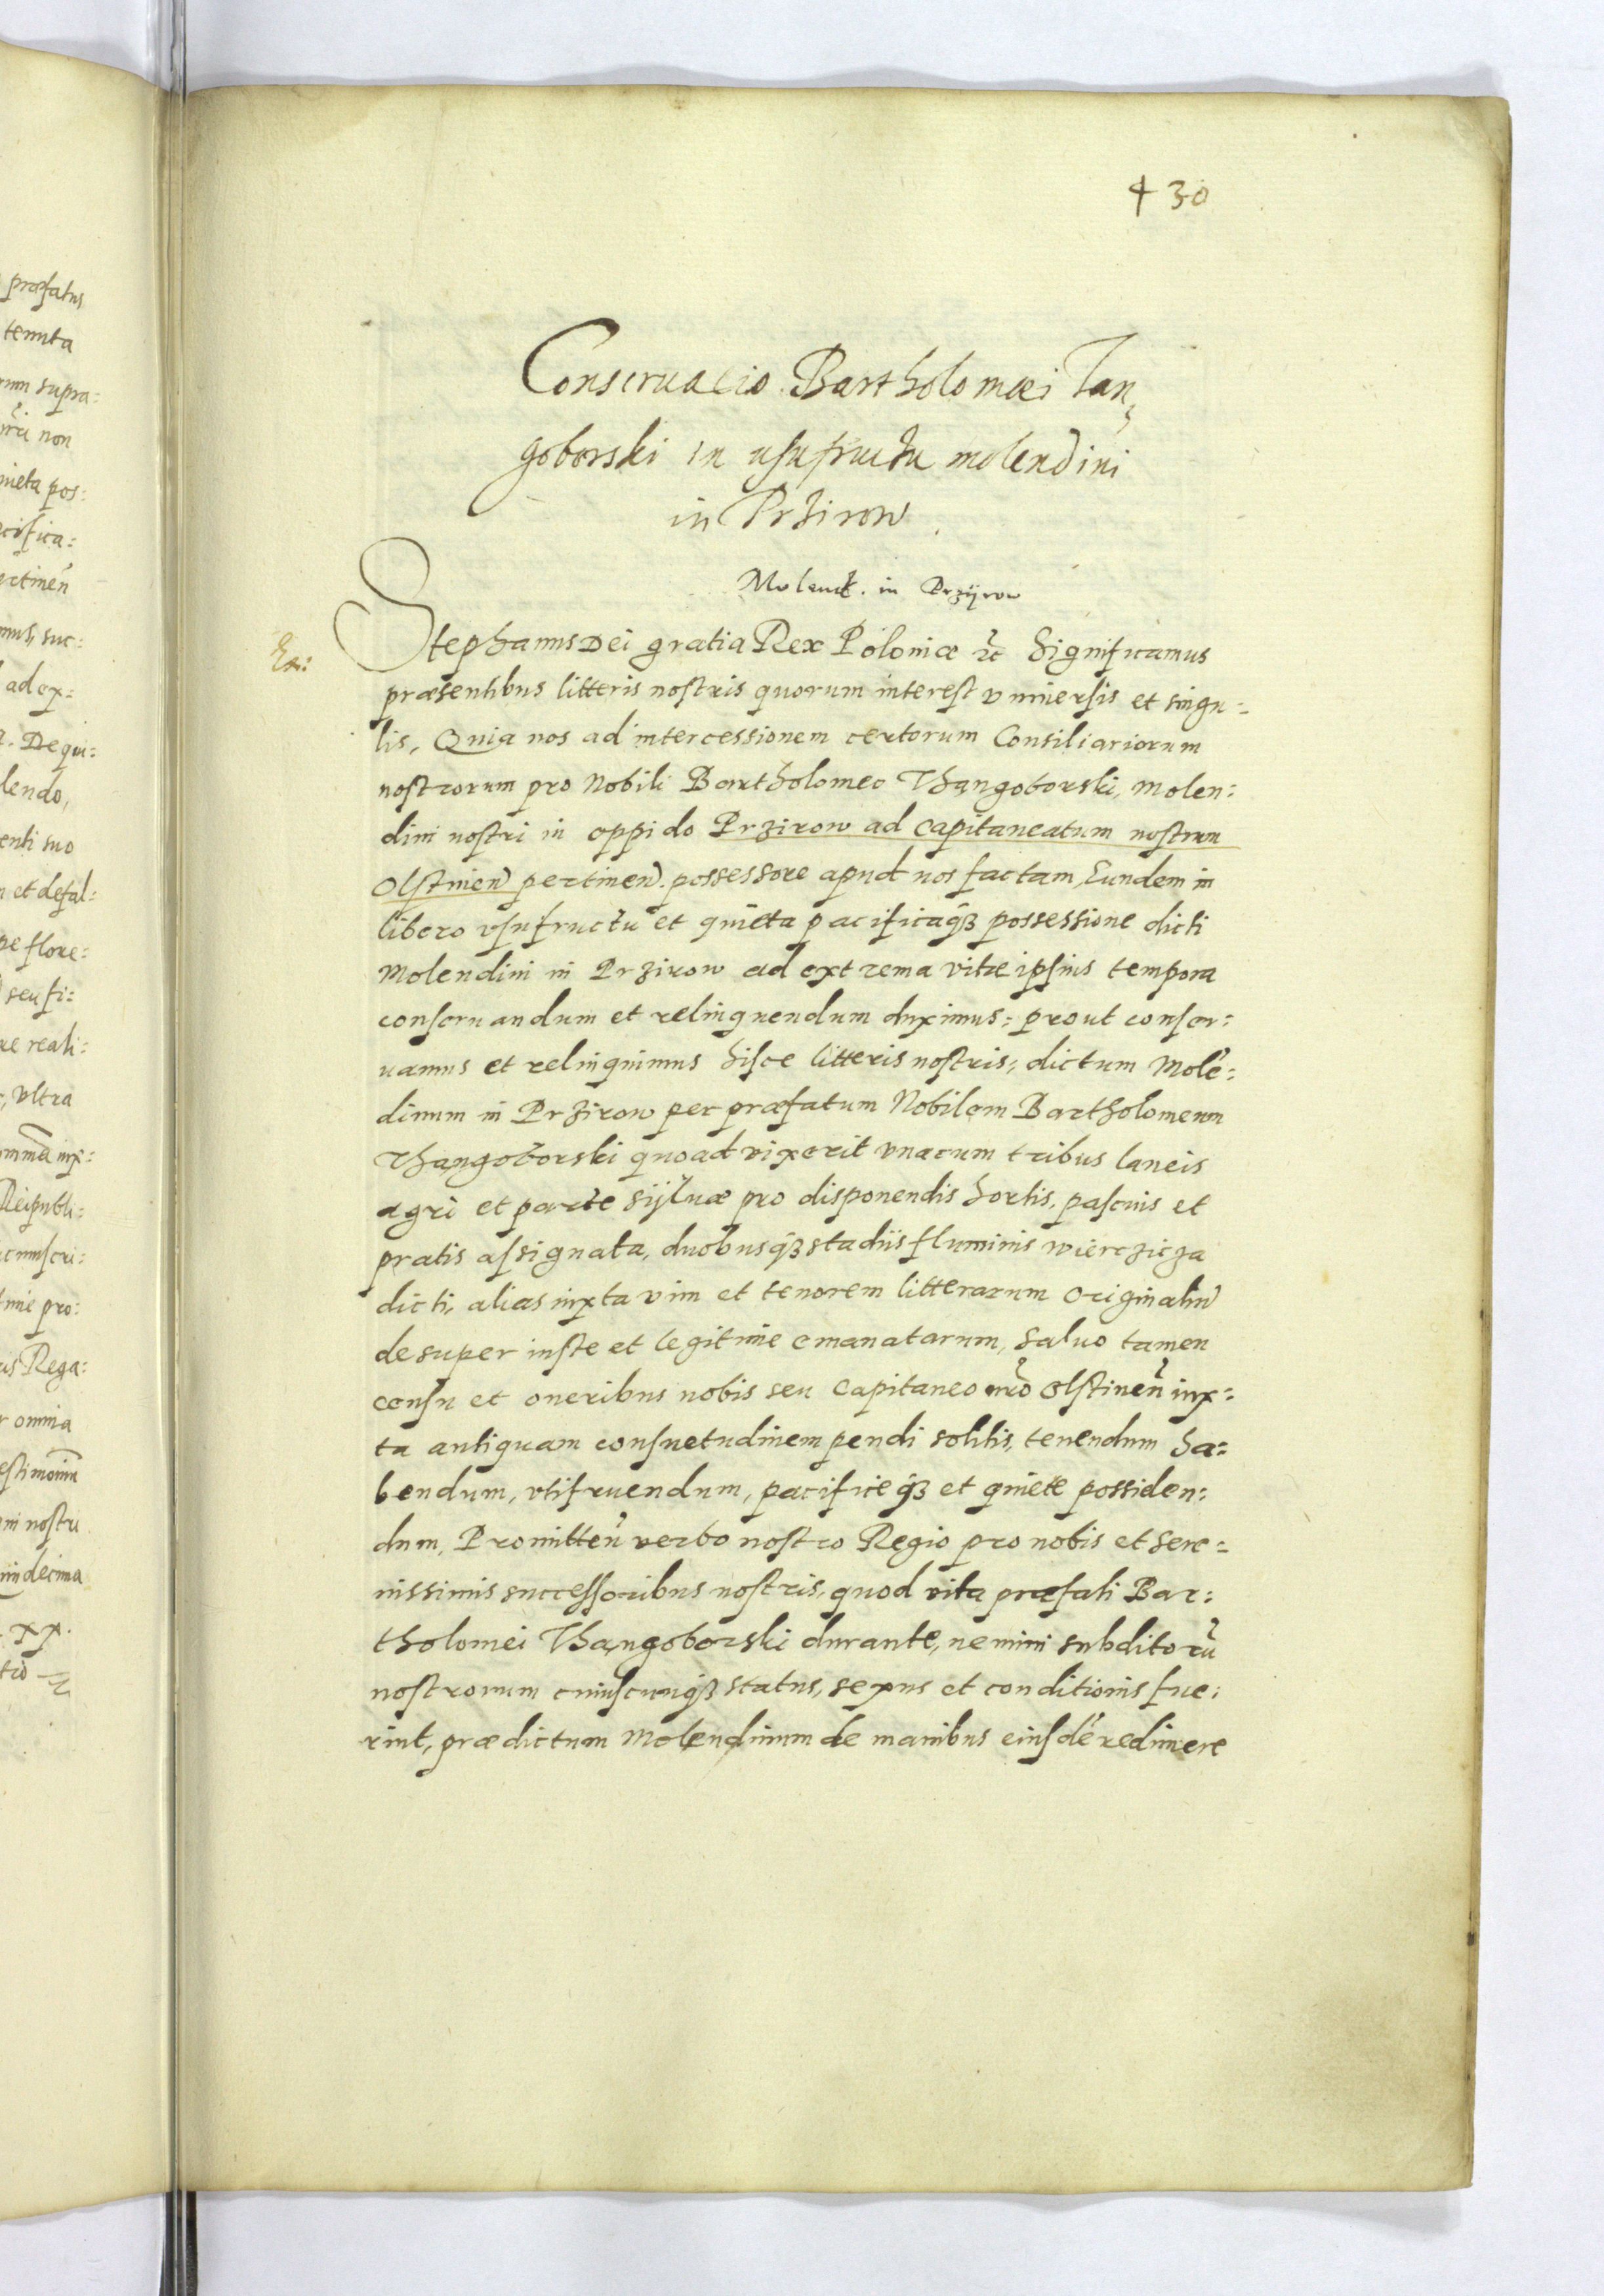 430
Conseruacio Bartholomæi Tan¸
goborski in usufructu molendini
in Przirow
Molend. in Przÿrow
Ex:
Stephanus Dei gratia Rex Poloniæ etc Significamus
præsentibus litteris nostris quorum interest vniuersis et singu:
lis, Quia nos ad intercessionem certorum Consiliariorum
nostrorum pro Nobili Bartholomeo Thangoborski, molen:
dini nostri in oppido Przirow ad capitaneatum nostrum
Olstinen pertinen. possessore apud nos factam, Eundem in
libero vsufructu et quieta pacificaq3 possessione dicti
Molendini in Przirow ad extrema vitæ ipsius tempora
conseruandum et relinquendum duximus: prout conser:
uamus et relinquimus hisce litteris nostris, dictum Molē:
dinum in Przirow per præfatum Nobilem Bartholomeum
Thangoborski quoad vixerit vnacum tribus laneis
agri et parte sÿluæ pro disponendis hortis, pascuis et
pratis assignata, duobusq3 stadiis fluminis wierczicza
dicti, alias iuxta vim et tenorem litterarum originaliu
desuper iuste et legitime emanatarum, saluo tamen
censu et oneribus nobis seu capitaneo nro Olstinen iux:
ta antiquam consuetudinem pendi solitis, tenendum ha:
bendum, vtifruendum, pacificeq3 et quiete possiden:
dum, Promitten verbo nostro Regio pro nobis et sere:
nissimis successoribus nostris, quod vita præfati Bar:
tholomei Thangoborski durante, nemini subditorū
nostrorum cuiuscunq3 status, sexus et conditionis fue:
rint, prædictum Molendinum de manibus eiusdē redimere
præfatus
tenuta
rum supra:
nri non
quieta pos:
cifica:
ertinen
mus, suc:
ad ex:
. De qui:
lendo,
enti suo
et desal:
pe flore:
seu fi:
re reali:
, vltra
iux:
Reipubli:
cumscri:
time pro:
is Rega:
omnia
estimoniū
ni nostri
undecima
xx.